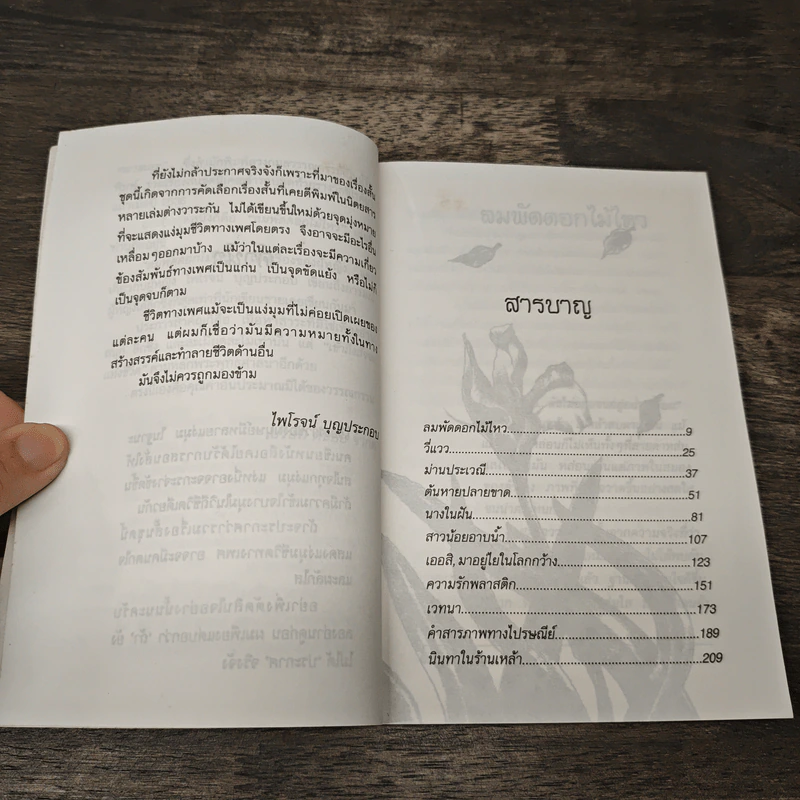 ที่ยังไม่กล้าประกาศจริงจังก็เพราะที่มาของเรื่องสั้น
ชุดนี้เกิดจากการคัดเลือกเรื่องสั้นที่เคยตีพิมพ์ในนิตยสาร
หลายเล่มต่างวาระกัน ไม่ได้เขียนขึ้นใหม่ด้วยจุดมุ่งหมาย
ที่จะแสดงแง่มุมชีวิตทางเพศโดยตรง จึงอาจจะมีอะไรอื่น
เหลื่อมๆออกมาบ้าง แม้ว่าในแต่ละเรื่องจะมีความเกี่ยว
ข้องสัมพันธ์ทางเพศเป็นแก่น เป็นจุดขัดแย้ง หรือไม่ก็
เป็นจุดจบก็ตาม
ชีวิตทางเพศแม้จะเป็นแง่มุมที่ไม่ค่อยเปิดเผยของ
แต่ละคน แต่ผมก็เชื่อว่ามันมีความหมายทั้งในทาง
สร้างสรรค์และทำลายชีวิตด้านอื่น
มันจึงไม่ควรถูกมองข้าม
ไพโรจน์ บุญประกอบ
สารบาญ
ลมพัดดอกไม้ไหว..........9
วี่แวว..........25
ม่านประเวณี..........37
ต้นหายปลายขาด..........51
นางในฝัน..........81
สาวน้อยอาบน้ำ..........107
เออสิ, มาอยู่ไยในโลกกว้าง..........123
ความรักพลาสติก..........151
เวทนา..........173
คำสารภาพทางไปรษณีย์..........189
นินทาในร้านเหล้า..........209